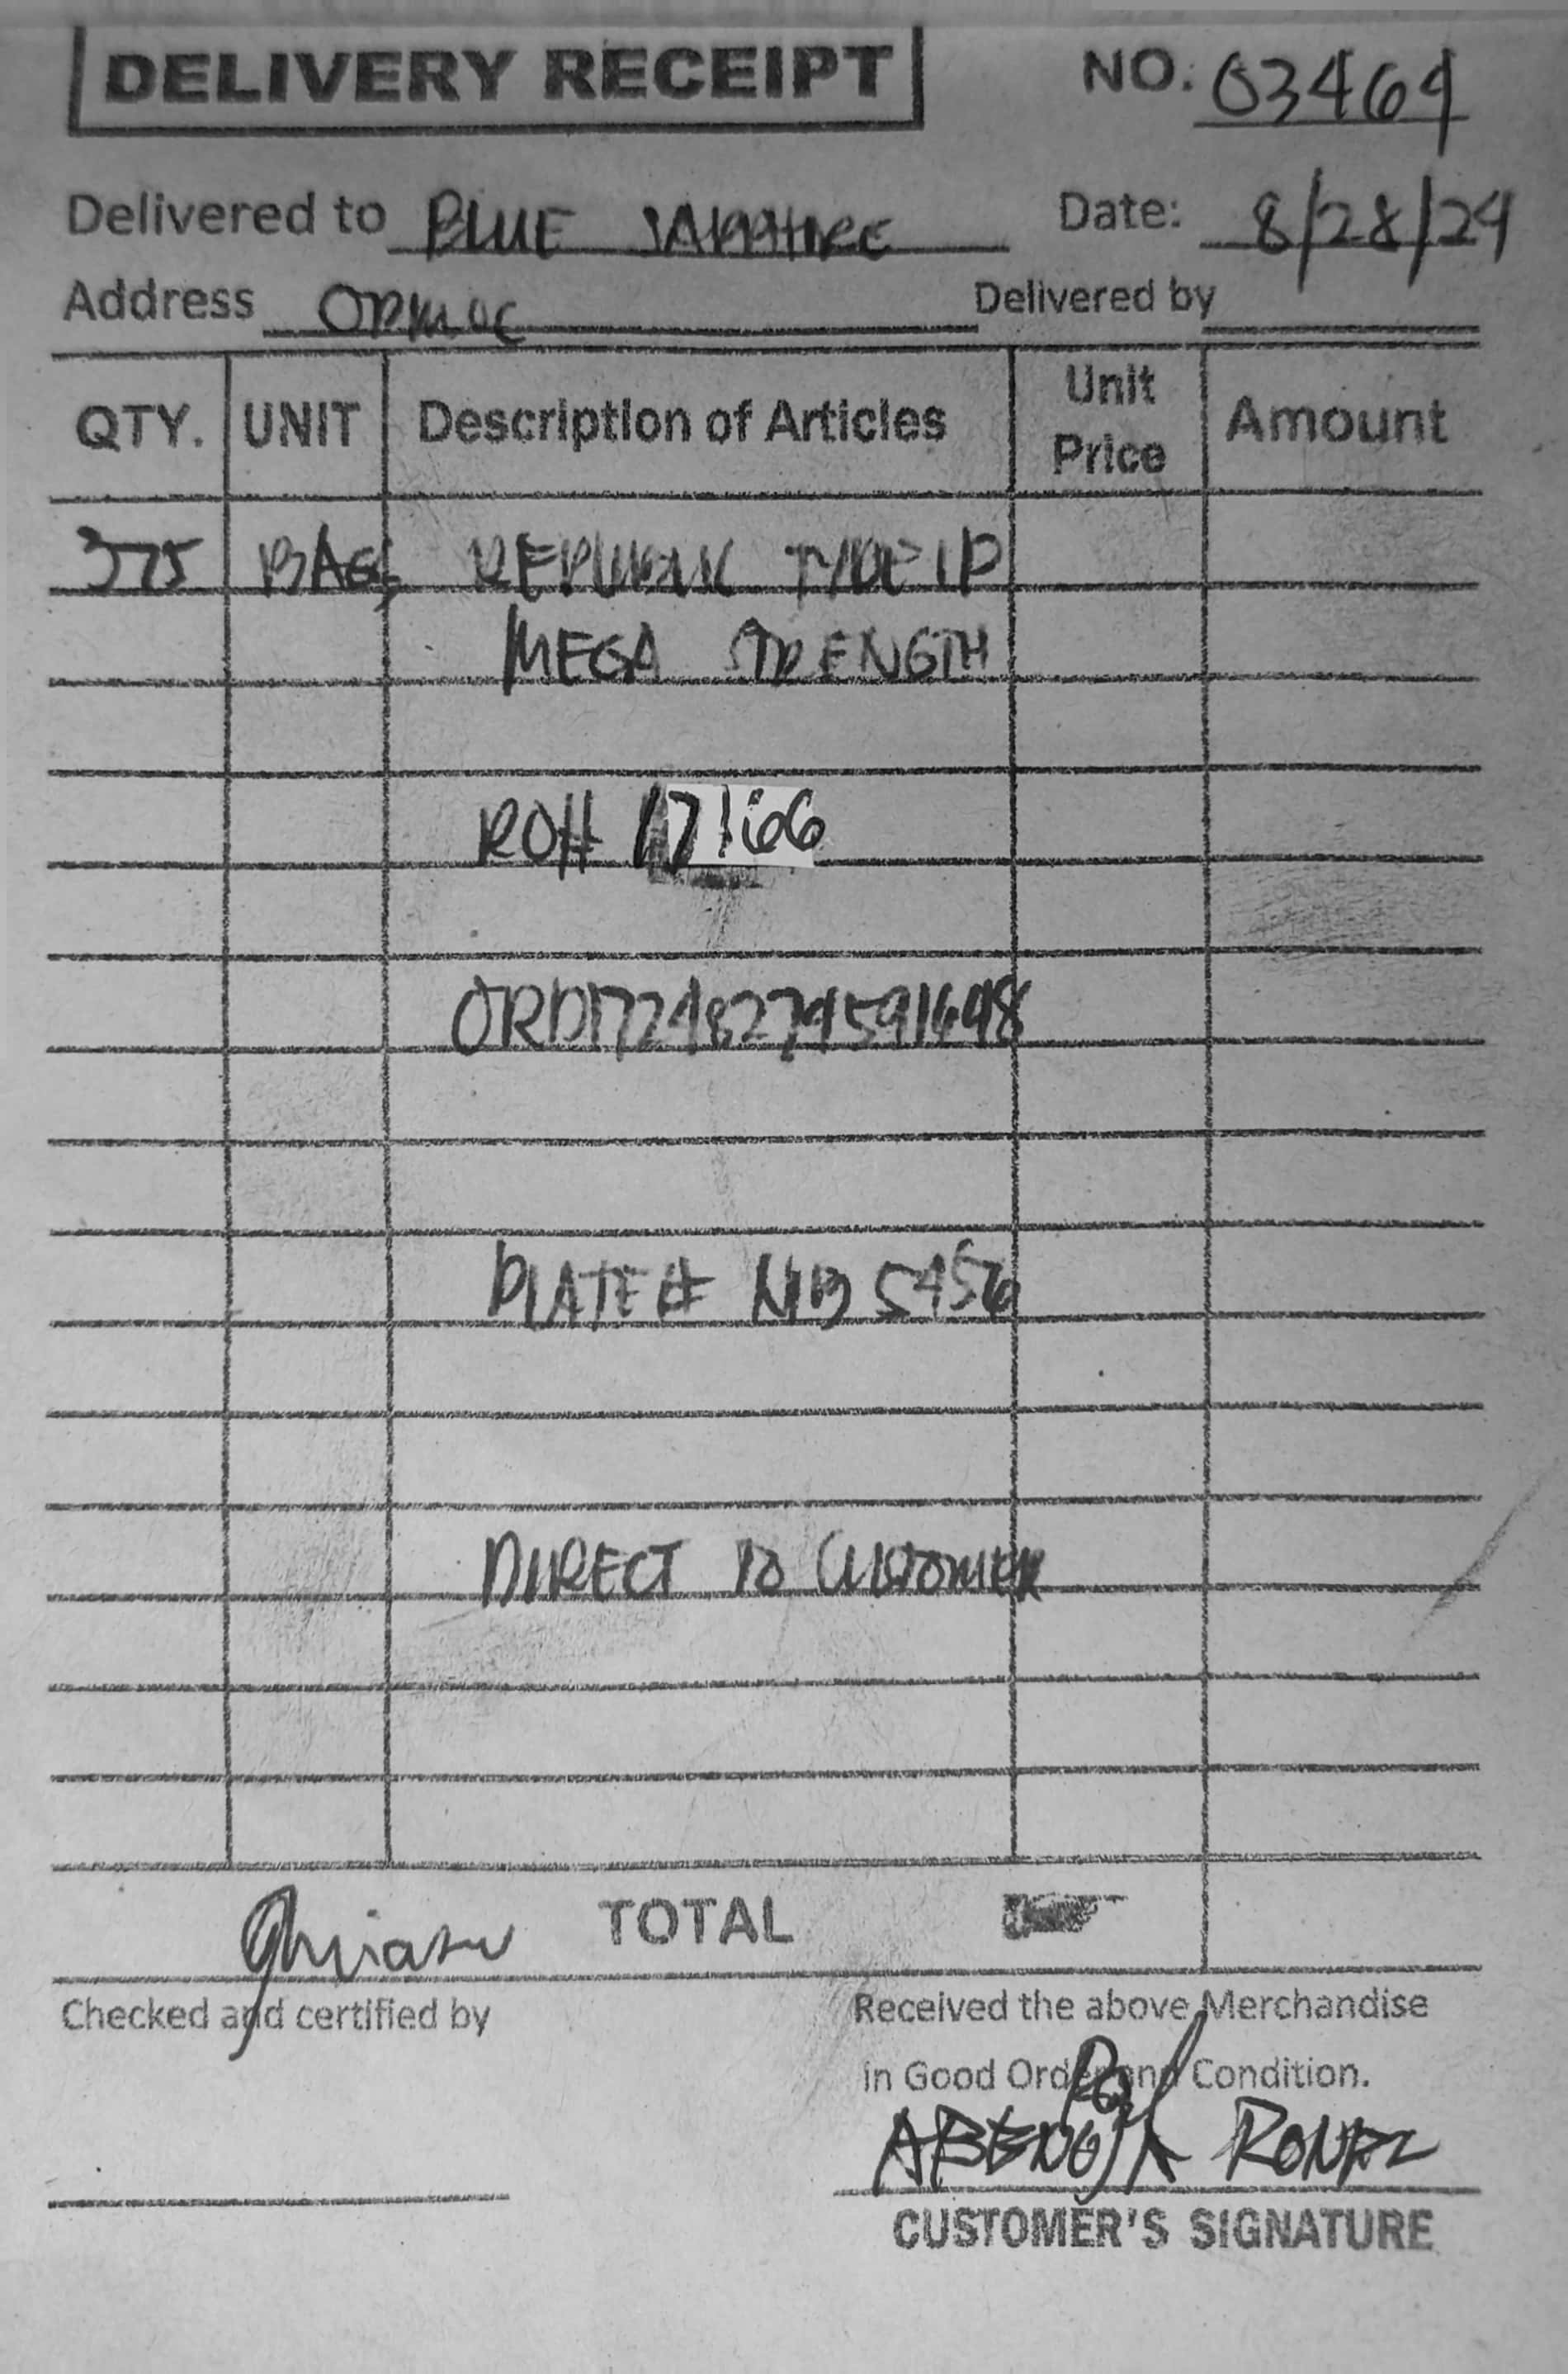 DELIVERY RECEIPT
NO. 03464
Delivered to BLUE SAPPHIRE
Date: 8/28/24
Address ORMOC
Delivered by
QTY. UNIT Description of Articles Unit Price Amount
375 BAGS REPUBLIC TYPE 1P
MEGA STRENGTH
RO# 17166
ORD17248274591698
PLATE # NIB 5456
DIRECT TO CUSTOMER
TOTAL
Checked and certified by
Received the above Merchandise
in Good Order and Condition.
ABENOJA RONEL
CUSTOMER'S SIGNATURE